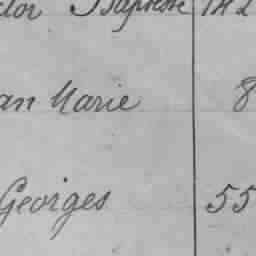 Baptiste 142
an Marie 8
Georges 55